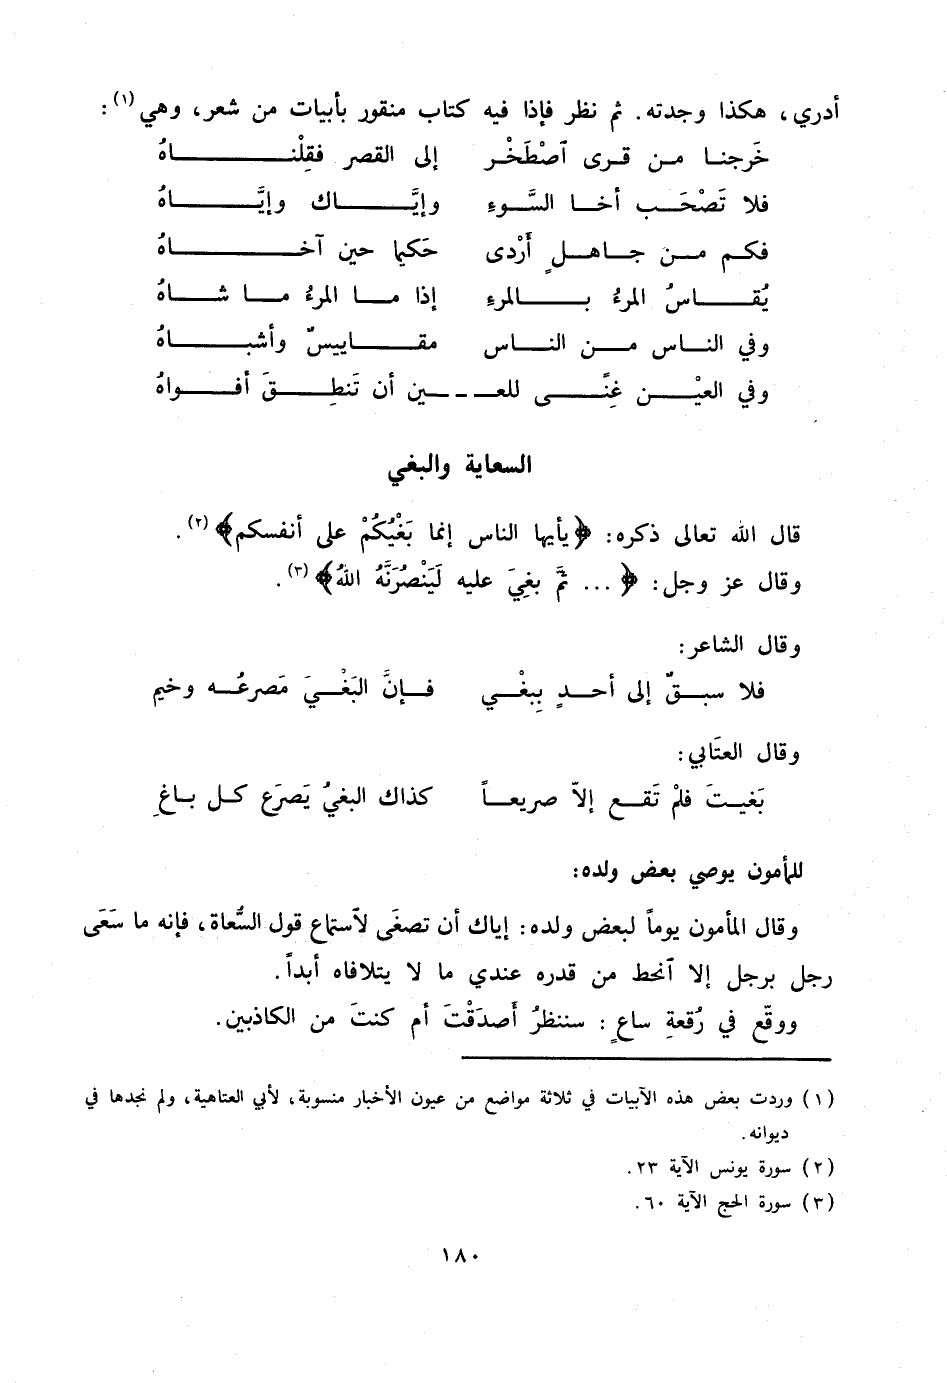 أدري، هكذا وجدته. ثم نظر فإذا فيه كتاب منقور بأبيات من شعر، وهي (١):
خَرجنا من قرى ٱصْطَخْر إلى القصر فقِلْناهُ
فلا تَصْحَب أخا السَّوءِ وإيَّاك وإيَّاهُ
فكم من جاهلٍ أَرْدى حَكيما حين آخاهُ
يُقاسُ المرءُ بالمرءِ إذا ما المرءُ ما شاهُ
وفي الناس من الناس مقاييسٌ وأشباهُ
وفي العيْن غِنًى للعـ ـ ـين أن تَنطِقَ أفواهُ
السعاية والبغي
قال الله تعالى ذكره: ﴿يأيها الناس إنما بَغْيُكُمْ على أنفسكم﴾ (٢).
وقال عز وجل: ﴿... ثمَّ بغِيَ عليه لَيَنْصُرَنَّهُ اللهُ﴾ (٣).
وقال الشاعر:
فلا سبقٌ إلى أحدٍ بِبغْي فإنَّ البَغْيَ مَصرعُه وخيم
وقال العتَابي:
بَغيتَ فلمْ تَقع إلاّ صريعاً كذاك البغيُ يَصرَع كل باغِ
للمأمون يوصي بعض ولده:
وقال المأمون يوماً لبعض ولده: إياك أن تصغَى لٱستماع قول السُّعاة، فإنه ما سَعَى
رجل برجل إلا ٱنحط من قدره عندي ما لا يتلافاه أبداً.
ووقّع في رُقعةِ ساعٍ: سننظرُ أَصدَقْتَ أم كنتَ من الكاذبين.
(١) وردت بعض هذه الآبيات في ثلاثة مواضع من عيون الأخبار منسوبة، لأبي العتاهية، ولم نجدها في
ديوانه.
(٢) سورة يونس الآية ٢٣.
(٣) سورة الحج الآية ٦٠.
١٨٠